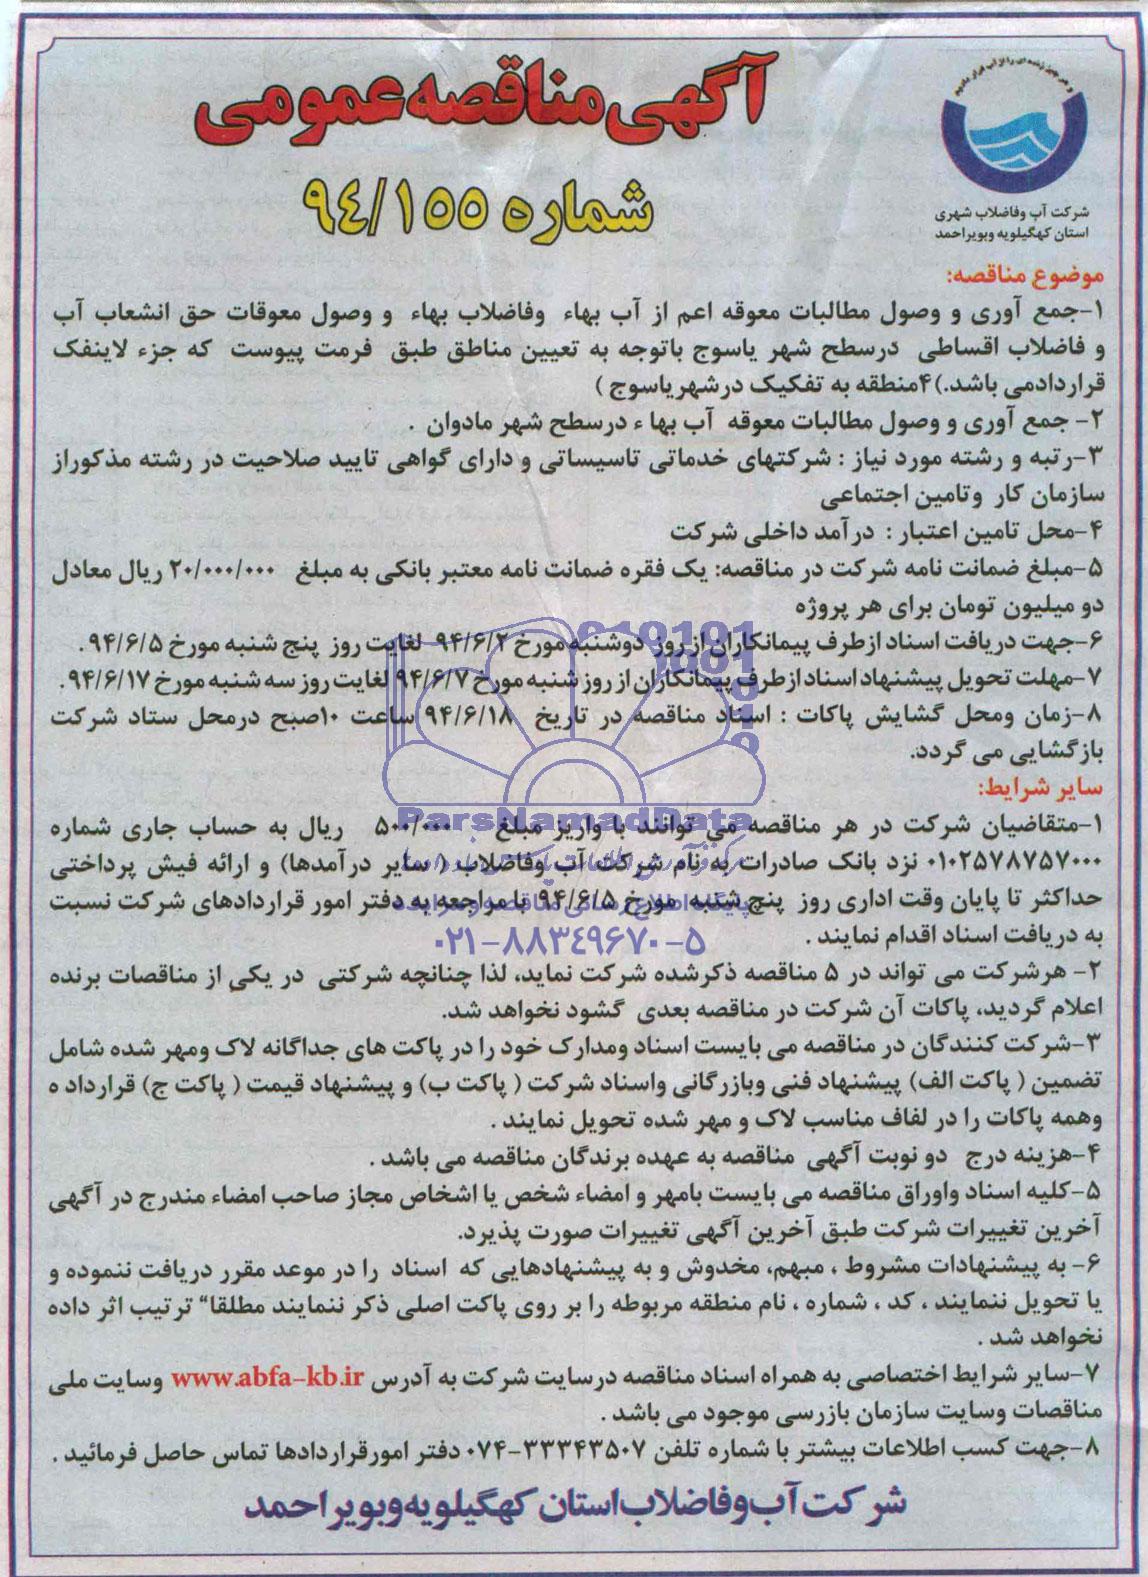 و هر چیز زنده ای را از آب قرار دادیم
آگهی مناقصه عمومی
شماره ۹۴/۱۵۵
شرکت آب وفاضلاب شهری
استان کهگیلویه وبویراحمد
موضوع مناقصه:
۱-جمع آوری و وصول مطالبات معوقه اعم از آب بهاء وفاضلاب بهاء و وصول معوقات حق انشعاب آب
و فاضلاب اقساطی درسطح شهر یاسوج باتوجه به تعیین مناطق طبق فرمت پیوست که جزء لاینفک
قراردادمی باشد.)۴منطقه به تفکیک درشهریاسوج )
۲- جمع آوری و وصول مطالبات معوقه آب بها ء درسطح شهر مادوان .
۳-رتبه و رشته مورد نیاز : شرکتهای خدماتی تاسیساتی و دارای گواهی تایید صلاحیت در رشته مذکوراز
سازمان کار وتامین اجتماعی
۴-محل تامین اعتبار : درآمد داخلی شرکت
۵-مبلغ ضمانت نامه شرکت در مناقصه: یک فقره ضمانت نامه معتبر بانکی به مبلغ ۲۰/۰۰۰/۰۰۰ ریال معادل
دو میلیون تومان برای هر پروژه
۶-جهت دریافت اسناد ازطرف پیمانکاران از روز دوشنبه مورخ ۹۴/۶/۲ لغایت روز پنج شنبه مورخ ۹۴/۶/۵.
۷-مهلت تحویل پیشنهاد اسناد ازطرف پیمانکاران از روز شنبه مورخ ۹۴/۶/۷ لغایت روز سه شنبه مورخ ۹۴/۶/۱۷.
۸-زمان ومحل گشایش پاکات : اسناد مناقصه در تاریخ ۹۴/۶/۱۸ ساعت ۱۰صبح درمحل ستاد شرکت
بازگشایی می گردد.
سایر شرایط:
ParsNamadData
۱-متقاضیان شرکت در هر مناقصه می توانند با واریز مبلغ ۵۰۰/۰۰۰ ریال به حساب جاری شماره
۰۱۰۲۵۷۸۷۵۷۰۰۰ نزد بانک صادرات به نام شرکت آب وفاضلاب ( سایر درآمدها) و ارائه فیش پرداختی
حداکثر تا پایان وقت اداری روز پنج شنبه مورخ ۹۴/۶/۵ با مراجعه به دفتر امور قراردادهای شرکت نسبت
به دریافت اسناد اقدام نمایند .
۰۲۱-۸۸۳۴۹۶۷۰-۵
۲- هرشرکت می تواند در ۵ مناقصه ذکرشده شرکت نماید، لذا چنانچه شرکتی در یکی از مناقصات برنده
اعلام گردید، پاکات آن شرکت در مناقصه بعدی گشود نخواهد شد.
۳-شرکت کنندگان در مناقصه می بایست اسناد ومدارک خود را در پاکت های جداگانه لاک ومهر شده شامل
تضمین ( پاکت الف) پیشنهاد فنی وبازرگانی واسناد شرکت ( پاکت ب) و پیشنهاد قیمت ( پاکت ج) قرارداد ه
وهمه پاکات را در لفاف مناسب لاک و مهر شده تحویل نمایند .
۴-هزینه درج دو نوبت آگهی مناقصه به عهده برندگان مناقصه می باشد .
۵-کلیه اسناد واوراق مناقصه می بایست بامهر و امضاء شخص یا اشخاص مجاز صاحب امضاء مندرج در آگهی
آخرین تغییرات شرکت طبق آخرین آگهی تغییرات صورت پذیرد.
۶- به پیشنهادات مشروط ، مبهم، مخدوش و به پیشنهادهایی که اسناد را در موعد مقرر دریافت ننموده و
یا تحویل ننمایند ، کد ، شماره ، نام منطقه مربوطه را بر روی پاکت اصلی ذکر ننمایند مطلقا“ ترتیب اثر داده
نخواهد شد .
۷-سایر شرایط اختصاصی به همراه اسناد مناقصه درسایت شرکت به آدرس www.abfa-kb.ir وسایت ملی
مناقصات وسایت سازمان بازرسی موجود می باشد .
۸-جهت کسب اطلاعات بیشتر با شماره تلفن ۳۳۳۴۳۵۰۷-۰۷۴ دفتر امورقراردادها تماس حاصل فرمائید .
شرکت آب وفاضلاب استان کهگیلویه وبویراحمد